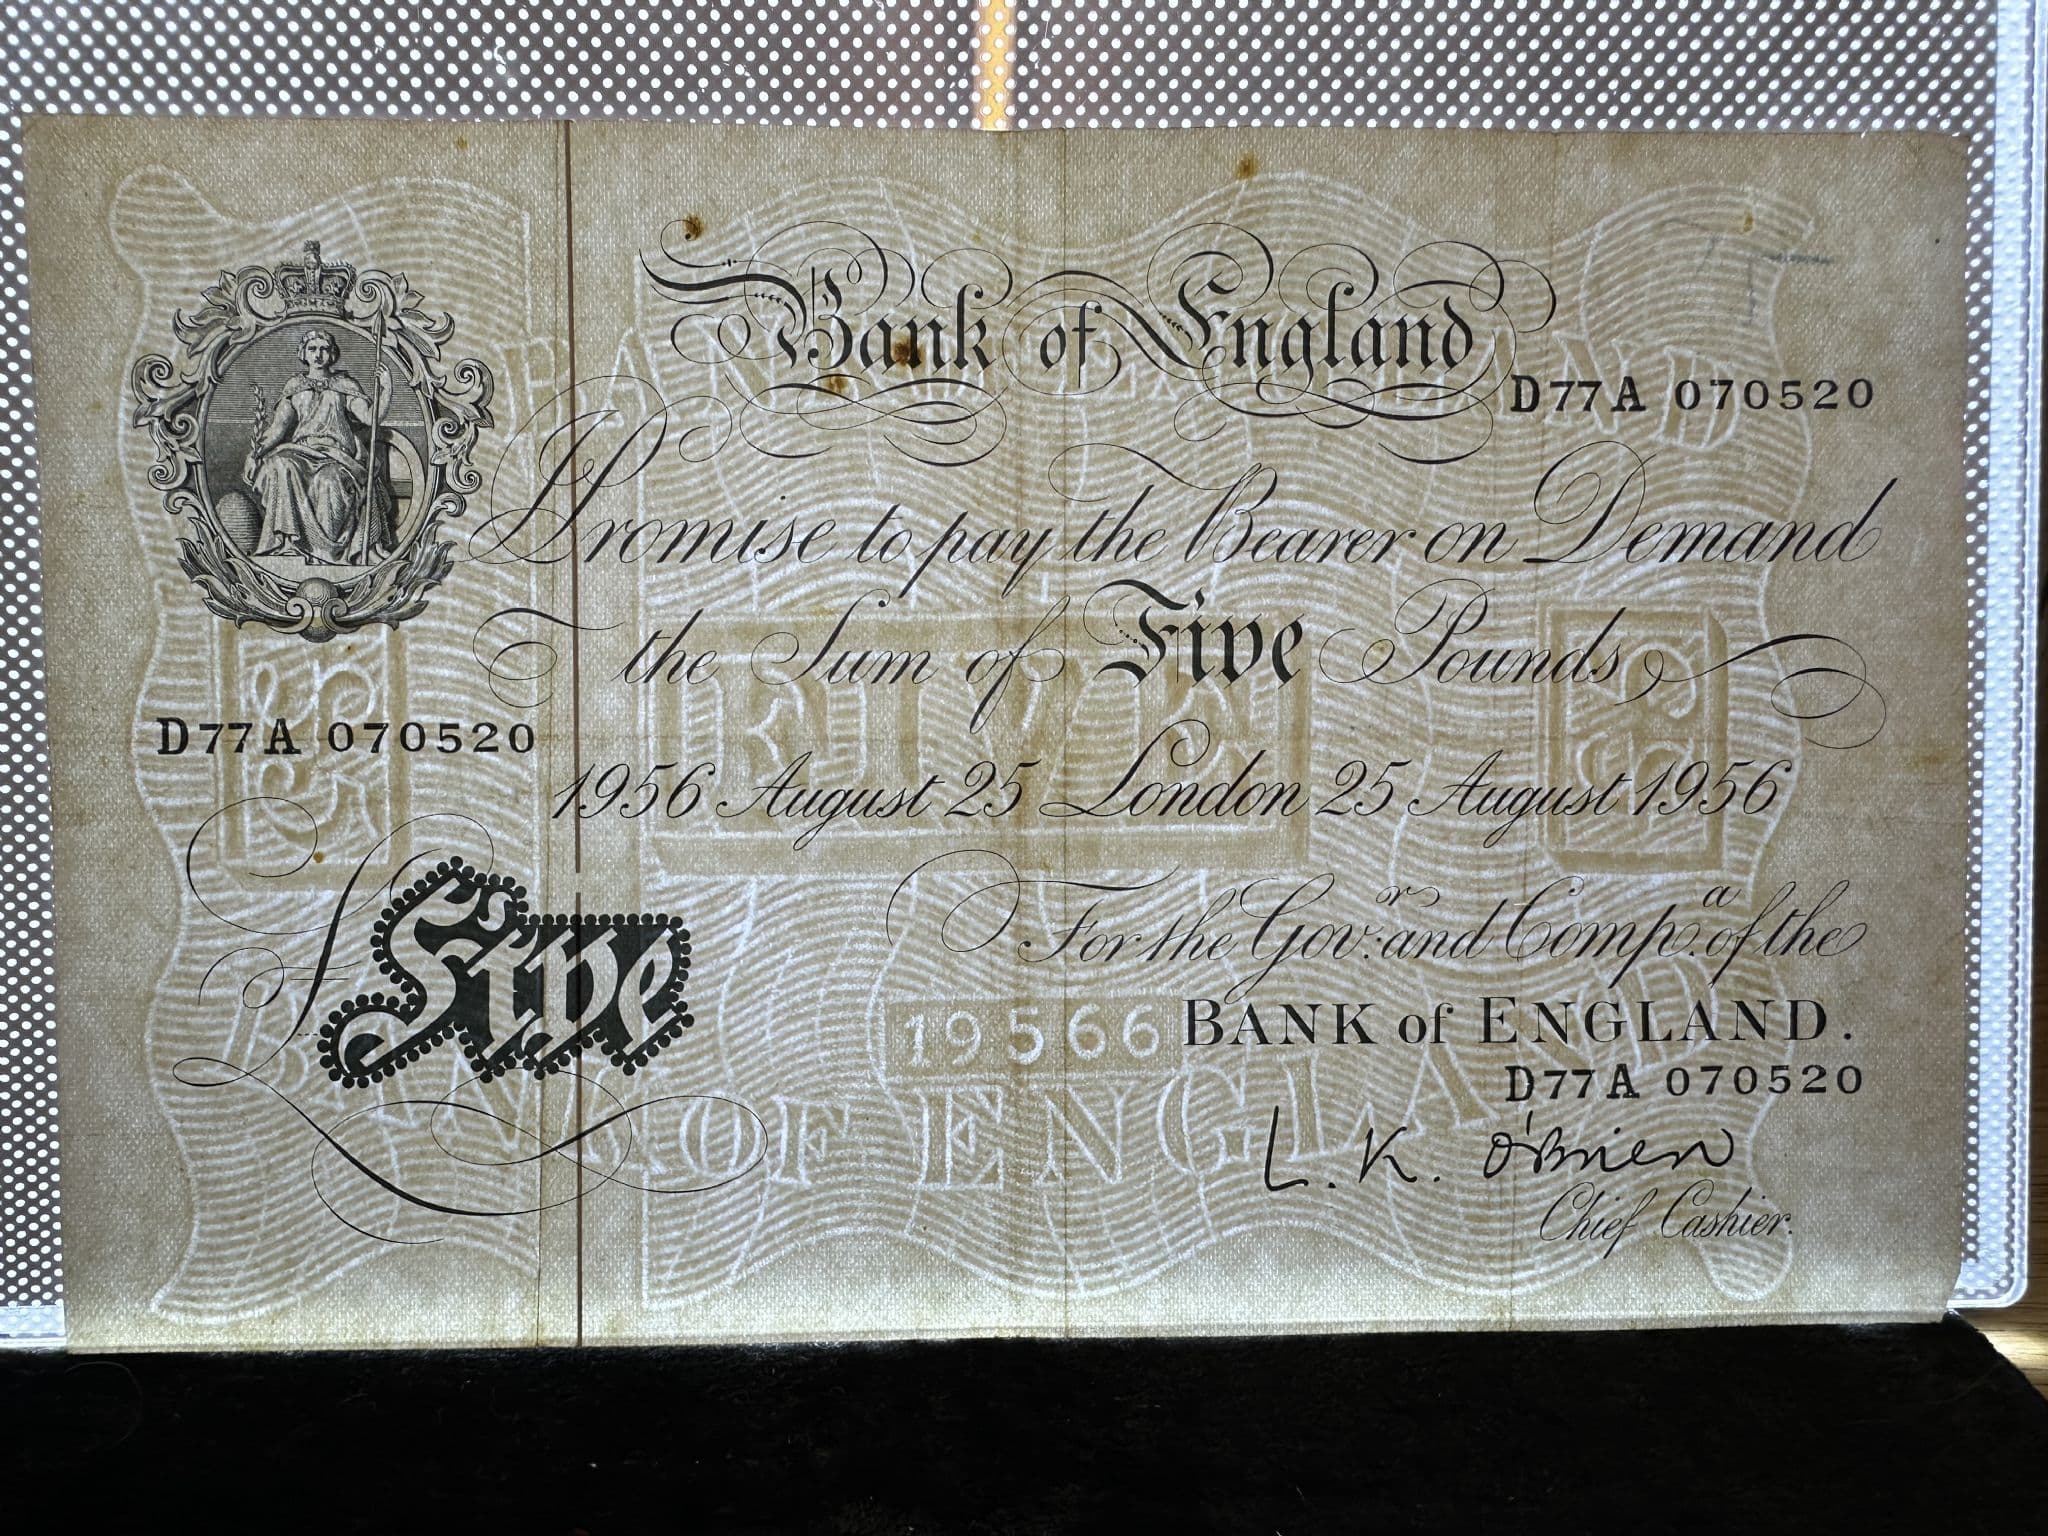 Bank of England
D77A 070520
Promise to pay the Bearer on Demand
the Sum of Five Pounds
D77A 070520
1956 August 25 London 25 August 1956
£ Five
For the Gov.r and Comp.a of the
19566
BANK of ENGLAND.
D77A 070520
BANK OF ENGLAND
L. K. O'Brien
Chief Cashier.
FIVE